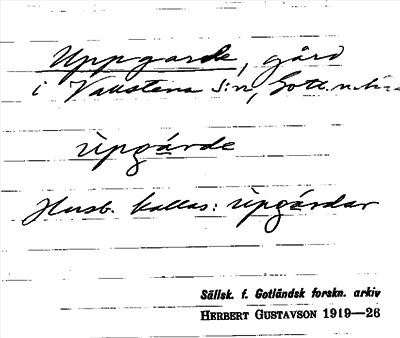 Uppgarde, gård
i Vallstena S:n, Gotl. n.
ùpgá̱rde
Husb. kallas: ùpgá̱rdar
Sällsk. f. Gotländsk forskn. arkiv
HERBERT GUSTAVSON 1919—26